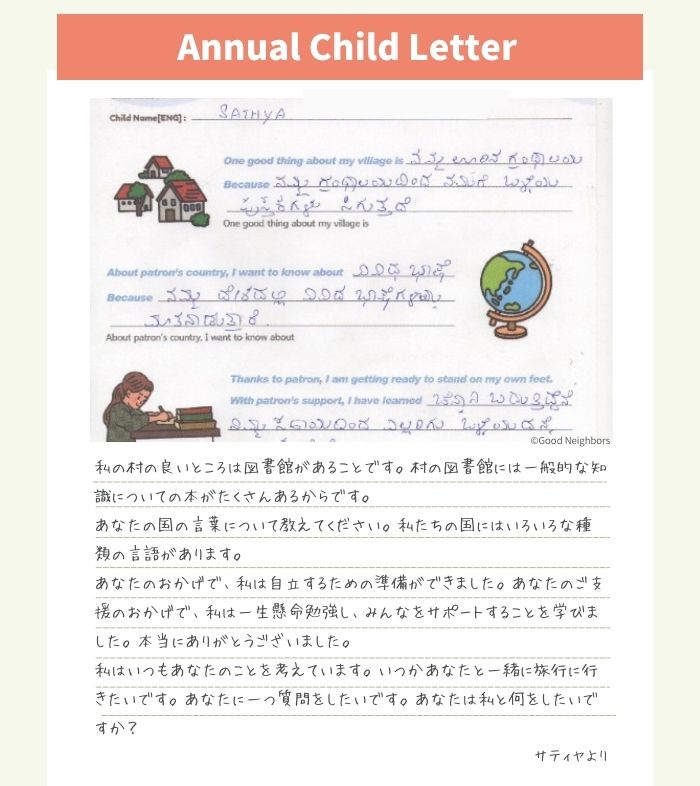 Annual Child Letter
Child Name[ENG] : SATHYA
One good thing about my village is ನಮ್ಮ ಊರಿನ ಗ್ರಂಥಾಲಯ
Because ನಮ್ಮ ಗ್ರಂಥಾಲಯದಿಂದ ನಮಗೆ ಒಳ್ಳೆಯ
ಪುಸ್ತಕಗಳು ಸಿಗುತ್ತದೆ
One good thing about my village is
About patron's country, I want to know about ವಿವಿಧ ಭಾಷೆ
Because ನಮ್ಮ ದೇಶದಲ್ಲಿ ವಿವಿದ ಭಾಷೆಗಳನ್ನು
ಮಾತನಾಡುತ್ತಾರೆ.
About patron's country, I want to know about
Thanks to patron, I am getting ready to stand on my own feet.
With patron's support, I have learned
ನಿಮ್ಮ ಸಹಾಯದಿಂದ ಎಲ್ಲರಿಗು
©Good Neighbors
私の村の良いところは図書館があることです。村の図書館には一般的な知
識についての本がたくさんあるからです。
あなたの国の言葉について教えてください。私たちの国にはいろいろな種
類の言語があります。
あなたのおかげで、私は自立するための準備ができました。あなたのご支
援のおかげで、私は一生懸命勉強し、みんなをサポートすることを学びま
した。本当にありがとうございました。
私はいつもあなたのことを考えています。いつかあなたと一緒に旅行に行
きたいです。あなたに一つ質問をしたいです。あなたは私と何をしたいで
すか？
サティヤより